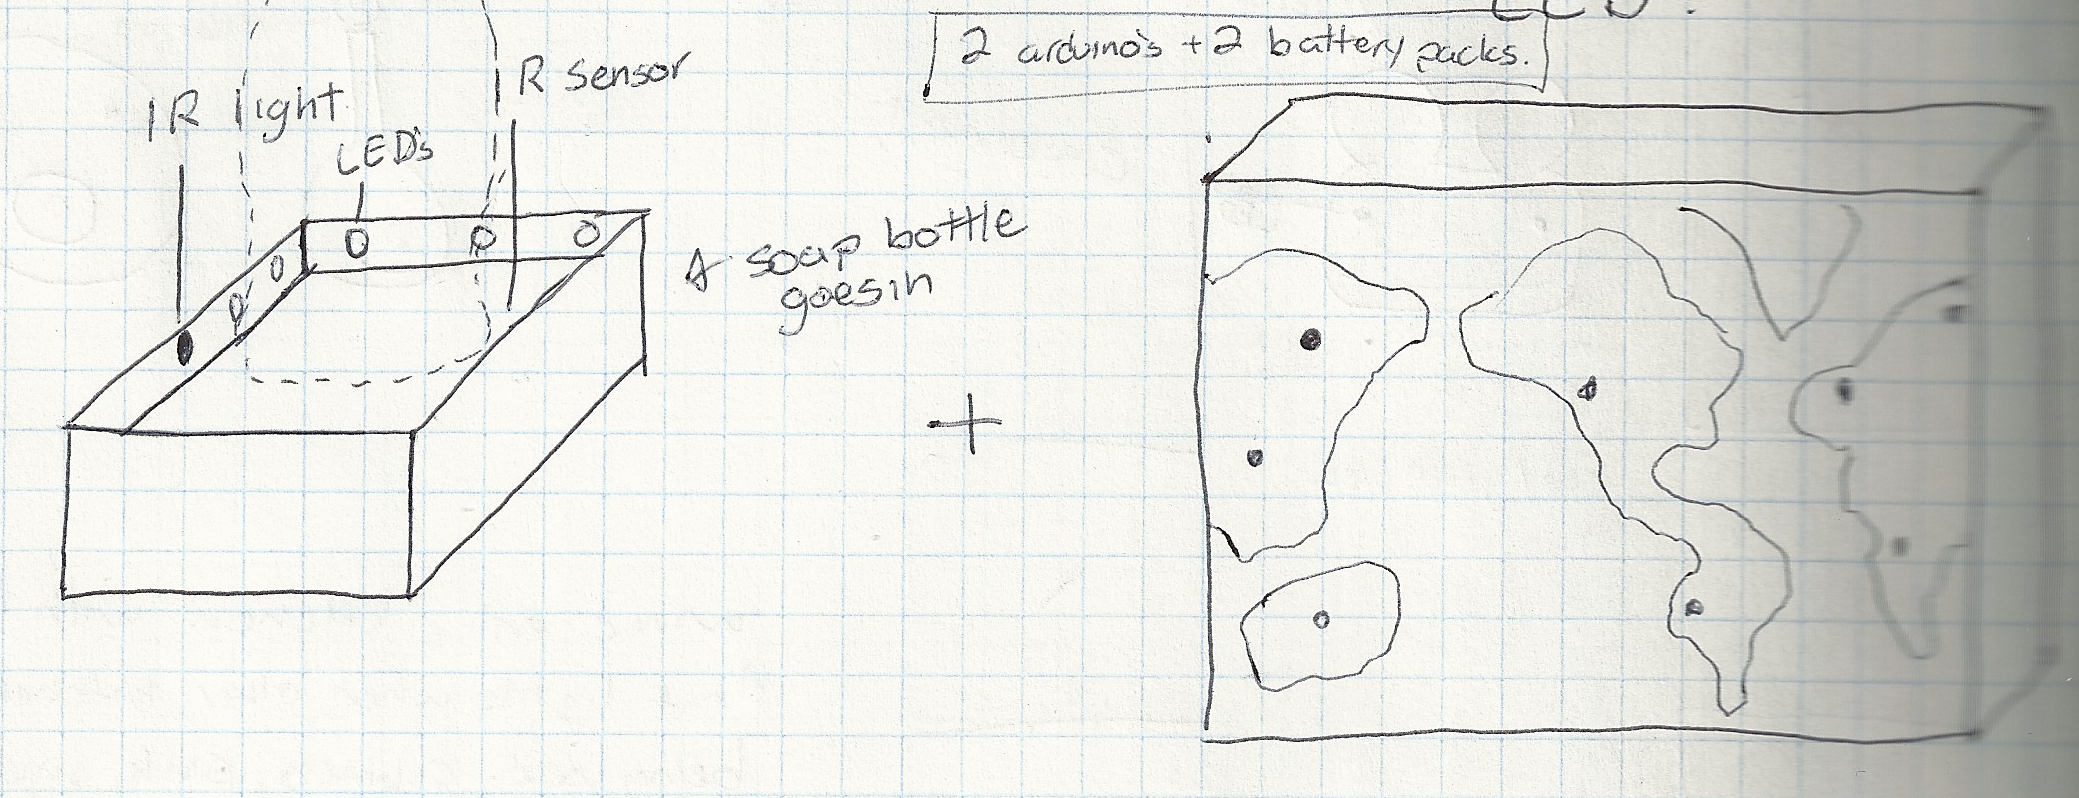 LCD.
2 arduino's + 2 battery packs.
IR light
LED's
IR sensor
soap bottle
goes in
+